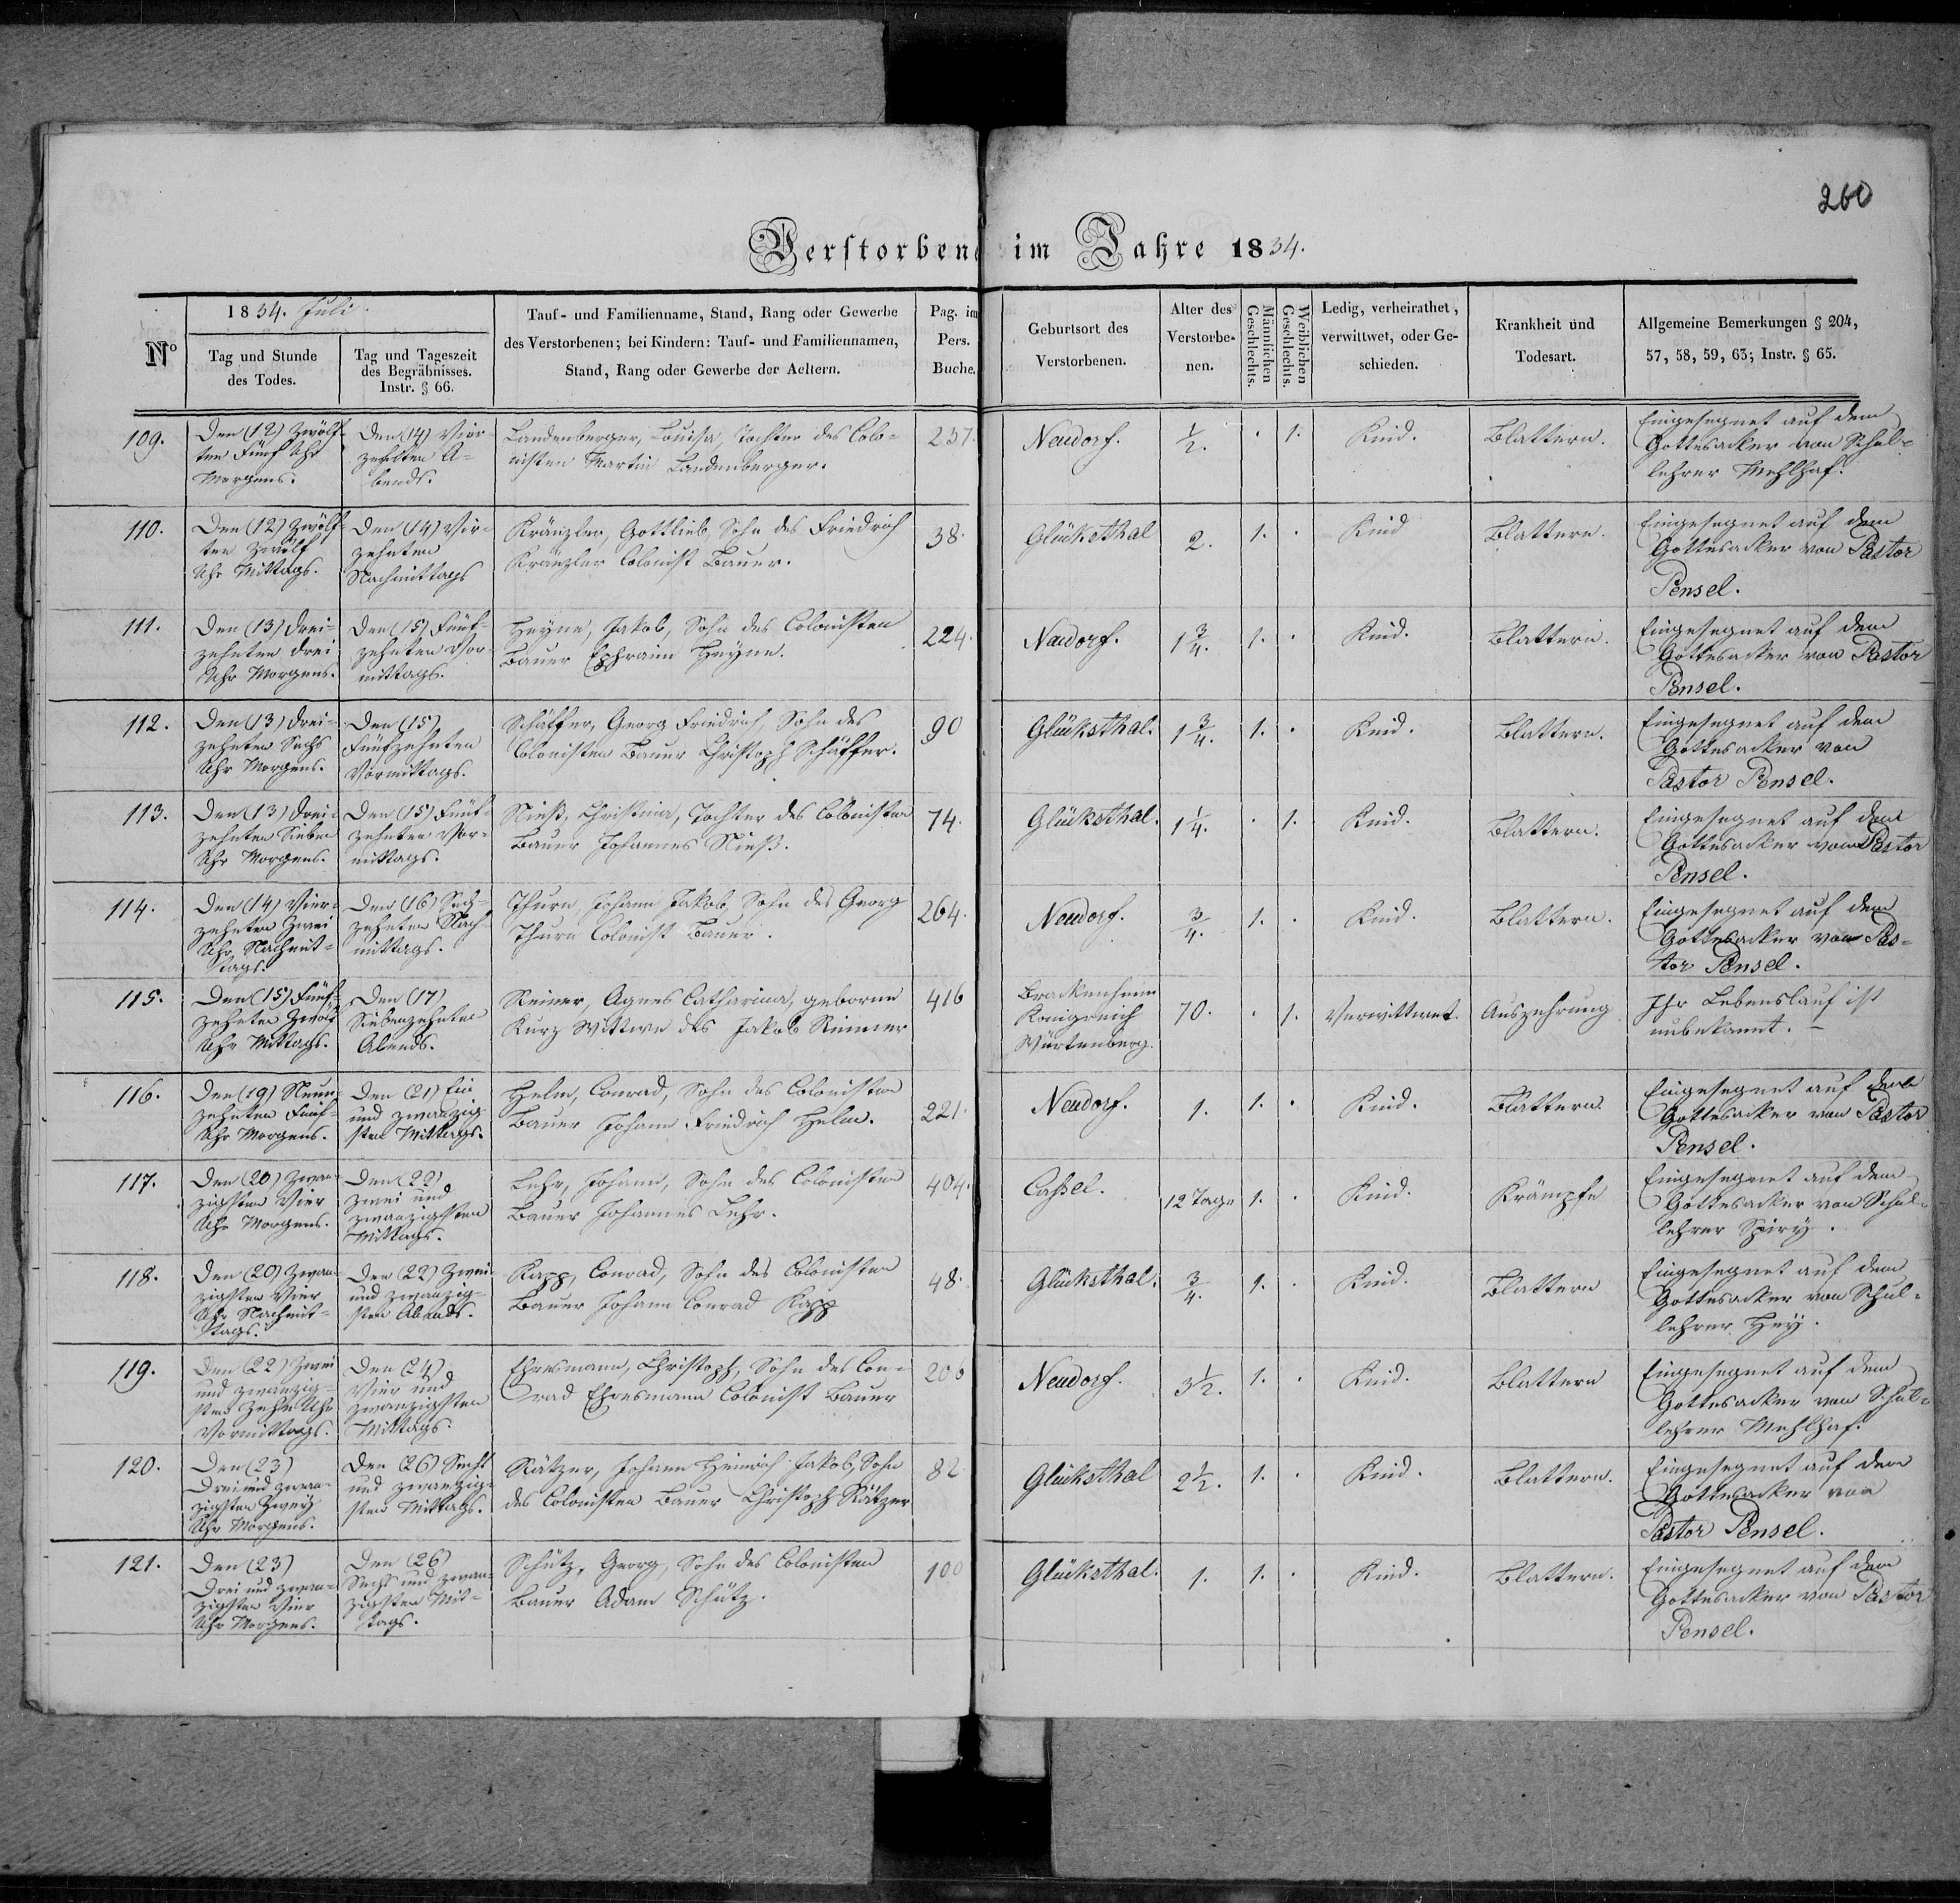 260
Verstorbene im Jahre 1834.
Nº
1834. Juli.
Tag und Stunde
des Todes.
Tag und Tageszeit
des Begräbnisses.
Instr. § 66.
Tauf- und Familienname, Stand, Rang oder Gewerbe
des Verstorbenen; bei Kindern: Tauf- und Familiennamen,
Stand, Rang oder Gewerbe der Aeltern.
Pag. im
Pers.
Buche.
Geburtsort des
Verstorbenen.
Alter des
Verstorbe-
nen.
Männlichen
Geschlechts.
Weiblichen
Geschlechts.
Ledig, verheirathet,
verwittwet, oder Ge-
schieden.
Krankheit und
Todesart.
Allgemeine Bemerkungen § 204,
57, 58, 59, 63; Instr. § 65.
109.
Den (12) Zwölf-
ten Fünf Uhr
Morgens.
Den (14) Vier-
zehnten A-
bends.
Landenberger, Louisa, Tochter des Colo-
nisten Martin Landenberger.
237.
Neudorf.
1/2.
1.
Kind.
Blattern.
Eingesegnet auf dem
Gottesacker von Schul-
lehrer Mehlhaf.
110.
Den (12) Zwölf-
ten Zwölf
Uhr Mittags.
Den (14) Vier-
zehnten
Nachmittags
Kränzler, Gottlieb, Sohn des Friedrich
Kränzler Colonist Bauer.
38.
Glüksthal
2.
1.
Kind
Blattern.
Eingesegnet auf dem
Gottesacker von Pastor
Pensel.
111.
Den (13) Drei-
zehnten Drei
Uhr Morgens.
Den (15) Fünf-
zehnten Vor-
mittags.
Heyne, Jakob, Sohn des Colonisten
Bauer Ephraim Heyne.
224.
Neudorf.
1 3/4.
1.
Kind.
Blattern.
Eingesegnet auf dem
Gottesacker von Pastor
Pensel.
112.
Den (13) Drei-
zehnten Sechs
Uhr Morgens.
Den (15)
Fünfzehnten
Vormittags.
Schäffer, Georg Friedrich, Sohn des
Colonisten Bauer Christoph Schäffer.
90
Glücksthal.
1 3/4.
1.
Kind.
Blattern.
Eingesegnet auf dem
Gottesacker von
Pastor Pensel.
113.
Den (13) Drei-
zehnten Sieben
Uhr Morgens.
Den (15) Fünf-
zehnten Vor-
mittags.
Nieß, Christina, Tochter des Colonisten
Bauer Johannes Nieß.
74.
Glücksthal.
1 1/4.
1.
Kind.
Blattern.
Eingesegnet auf dem
Gottesacker von Pastor
Pensel.
114.
Den (14) Vier-
zehnten Zwei
Uhr Nachmit-
tags.
Den (16) Sech-
zehnten Nach-
mittags.
Thurn, Johann Jakob, Sohn des Georg
Thurn Colonist Bauer.
264.
Neudorf.
3/4.
1.
Kind.
Blattern.
Eingesegnet auf dem
Gottesacker von Pas-
tor Pensel.
115.
Den (15) Fünf-
zehnten Zwölf
Uhr Mittags.
Den (17)
Siebenzehnten
Abends.
Reimer, Agnes Catharina, geborne
Kurz Wittwe des Jakob Reimer
416
Brackenheim
Königreich
Würtenberg.
70.
1.
Verwittwet.
Auszehrung
Ihr Lebenslauf ist
unbekannt. –
116.
Den (19) Neun-
zehnten Fünf
Uhr Morgens.
Den (21) Ein
und zwanzig-
sten Mittags.
Helm, Conrad, Sohn des Colonisten
Bauer Johann Friedrich Helm.
221.
Neudorf.
1.
1.
Kind.
Blattern.
Eingesegnet auf dem
Gottesacker von Pastor
Pensel.
117.
Den (20) Zwan-
zigsten Vier
Uhr Morgens.
Den (22)
Zwei und
zwanzigsten
Mittags.
Lehr, Johann, Sohn des Colonisten
Bauer Johannes Lehr.
404.
Caßel.
12 Tage
1.
Kind.
Krämpfe
Eingesegnet auf dem
Gottesacker von Schul-
lehrer Spiry.
118.
Den (20) Zwan-
zigsten Vier
Uhr Nachmit-
tags.
Den (22) Zwei
und zwanzig-
sten Abends.
Kapp, Conrad, Sohn des Colonisten
Bauer Johann Conrad Kapp
48.
Glücksthal.
3/4.
1.
Kind.
Blattern
Eingesegnet auf dem
Gottesacker von Schul-
lehrer Hey.
119.
Den (22) Zwei
und zwanzig-
sten Zehn Uhr
Vormittags.
Den (24)
Vier und
zwanzigsten
Mittags.
Ehresmann, Christoph, Sohn des Con-
rad Ehresmann Colonist Bauer
206
Neudorf.
3 1/2.
1.
Kind.
Blattern
Eingesegnet auf dem
Gottesacker von Schul-
lehrer Mehlhaf.
120.
Den (23)
Drei und zwan-
zigsten Zwey
Uhr Morgens.
Den (26) Sechs
und zwanzig-
sten Mittags.
Rätzer, Johann Heinrich Jakob, Sohn
des Colonisten Bauer Christoph Rätzer
82
Glücksthal
2 1/2.
1.
Kind.
Blattern.
Eingesegnet auf dem
Gottesacker von
Pastor Pensel.
121.
Den (23)
Drei und zwan-
zigsten Vier
Uhr Morgens.
Den (26)
Sechs und zwan-
zigsten Mit-
tags.
Schütz, Georg, Sohn des Colonisten
Bauer Adam Schütz.
100
Glücksthal.
1.
1.
Kind.
Blattern.
Eingesegnet auf dem
Gottesacker von Pastor
Pensel.